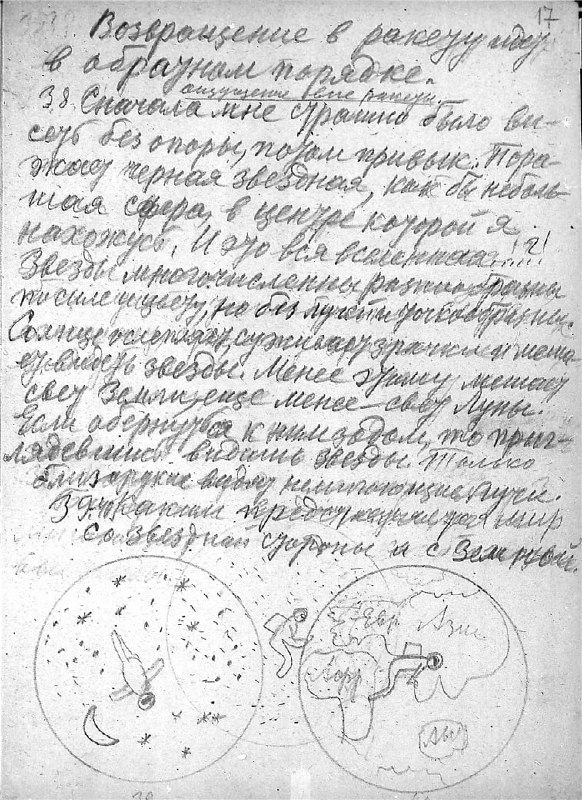 17
Возвращение в ракету идет
в обратном порядке.
ощущение вне ракеты
38. Сначала мне страшно было ви-
сеть без опоры, потом привык. Пора-
жает черная звездная, как бы неболь-
шая сфера, в центре которой я
нахожусь. И это вся вселенная....!?!
Звезды многочисленны разнообразны
по силе и цвету, но без лучей и точкообразны.
Солнце ослепляет суживает зрачки и меша-
ет видеть звезды. Менее этому мешает
свет Земли, еще менее – свет Луны.
Если обернуться к ним задом, то приг-
лядевшись видишь звезды. Только
близорукие видят немигающие лучи.
39. Каким представляется мир
со звездной стороны и с Земной.
Евр
Ази
Афр
Ав